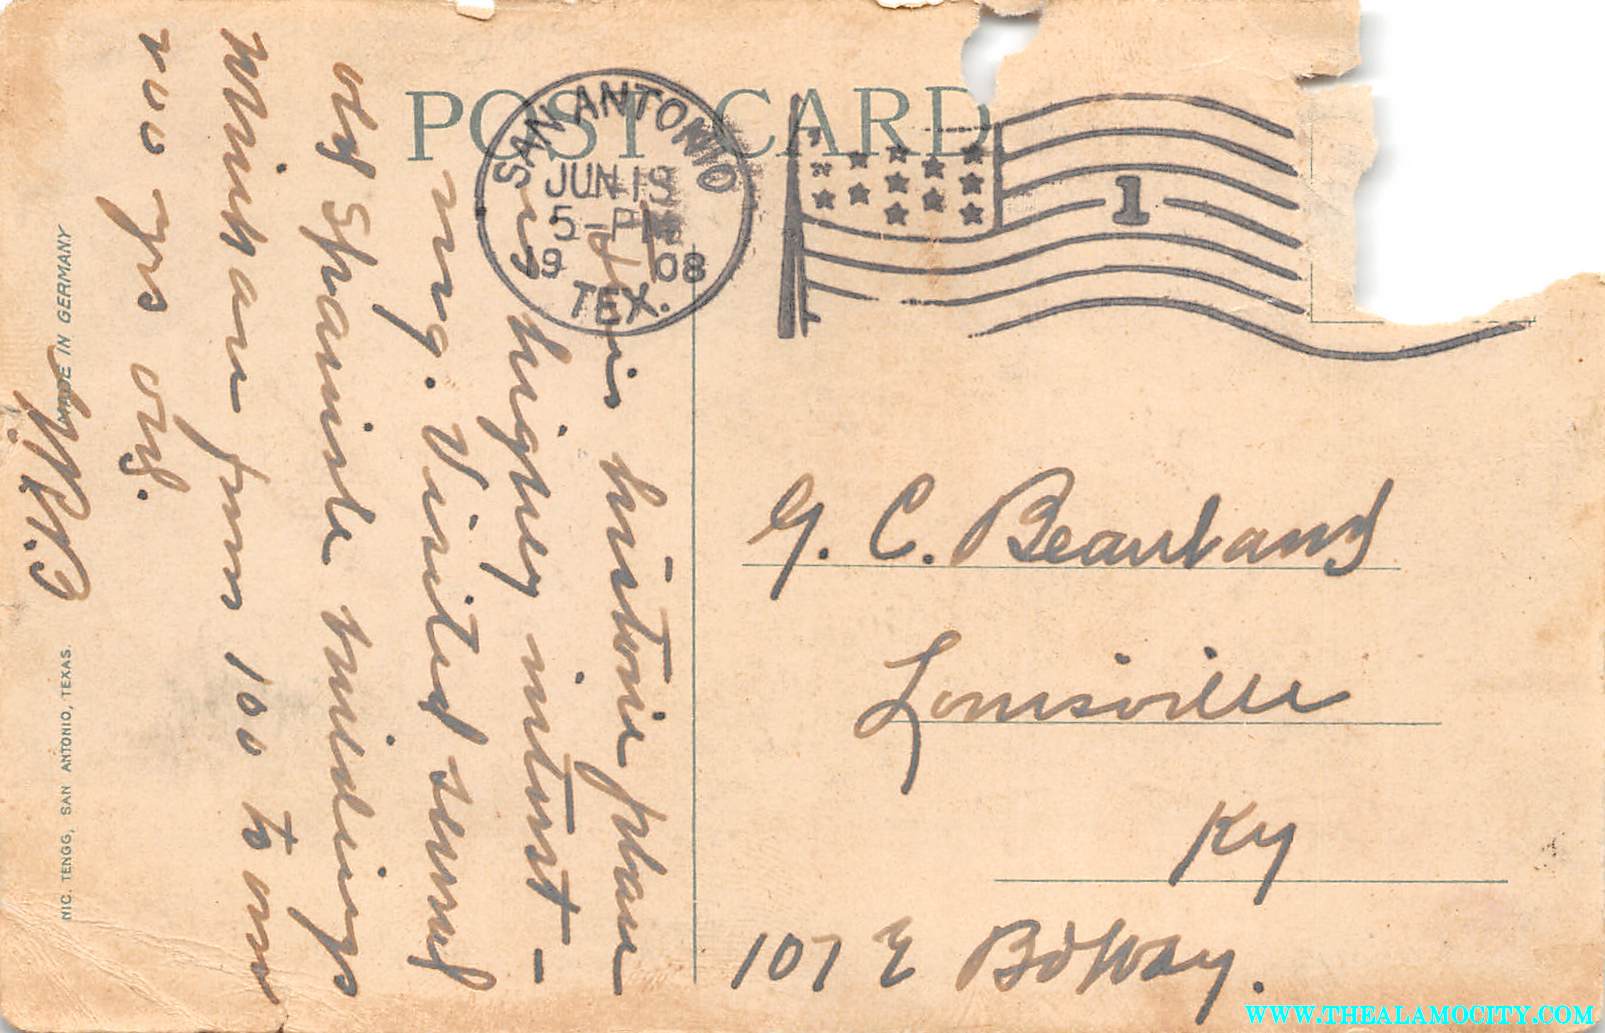 POST CARD
SAN ANTONIO
JUN 19
5-PM
1908
TEX.
1
This historic place
is highly interest-
ing. Visited several
old Spanish buildings
which are from 100 to
200 yrs old.
MADE IN GERMANY
NIC. TENGG, SAN ANTONIO, TEXAS.
G. C.
Louisville
Ky
107 E Bdway.
WWW.THEALAMOCITY.COM